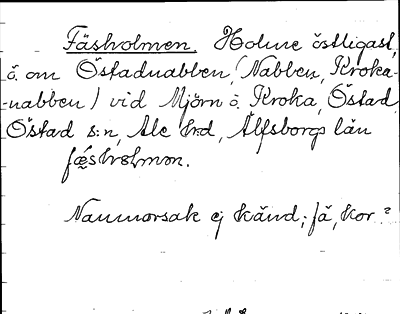 Fäsholmen. Holme östligast,
ö. om Östadnabben (Nabben, Kroka-
-nabben) vid Mjörn ö. Kroka, Östad,
Östad s:n, Ale hd, Älfsborgs län
Namnorsak ej känd; fä, kor?